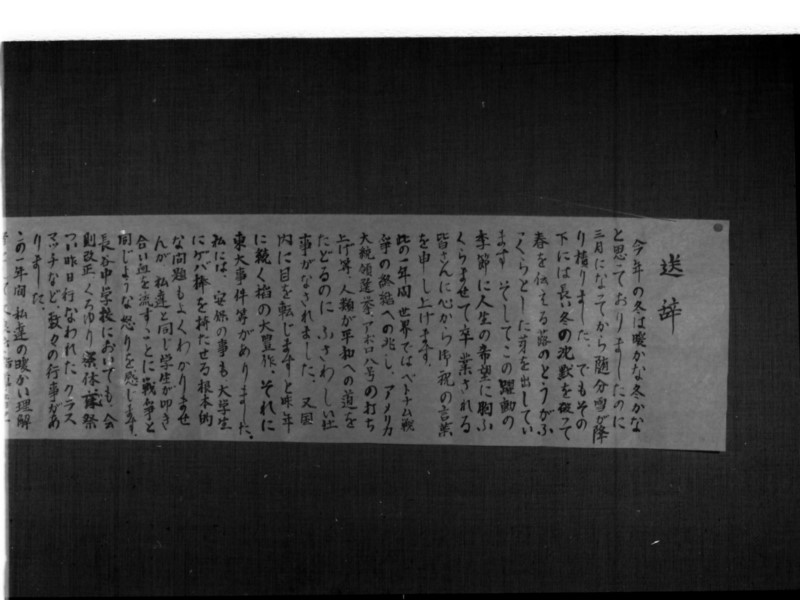 送辞
今年の冬は暖かな冬かな
と思っておりましたのに
三月になってから随分雪が降
り積りました。でもその
下には長い冬の沈黙を破って
春を伝える蕗のとうがふ
っくらとした芽を出してい
ます そしてこの躍動の
季節に人生の希望に胸ふ
くらませて卒業される
皆さんに心から御祝の言葉
を申し上げます。
此の一年間世界ではベトナム戦
争の終結への兆し、アメリカ
大統領選挙、アポロ八号の打ち
上げ等 人類が平和への道を
たどるのに ふさわしい仕
事がなされました、又国
内に目を転じますと昨年
に続く稲の大豊作、それに
東大事件等がありました。
私には、安保の事も大学生
にゲバ棒を持たせる根本的
な問題もよくわかりませ
んが 私達と同じ学生が叩き
合い血を流すことに戦争と
同じような怒りを感じます。
長谷中学校においても、会
則改正 くろゆり 祭
つい昨日行なわれた クラス
マッチなど数々の行事があ
りました。
この一年間 私達の暖かい理解